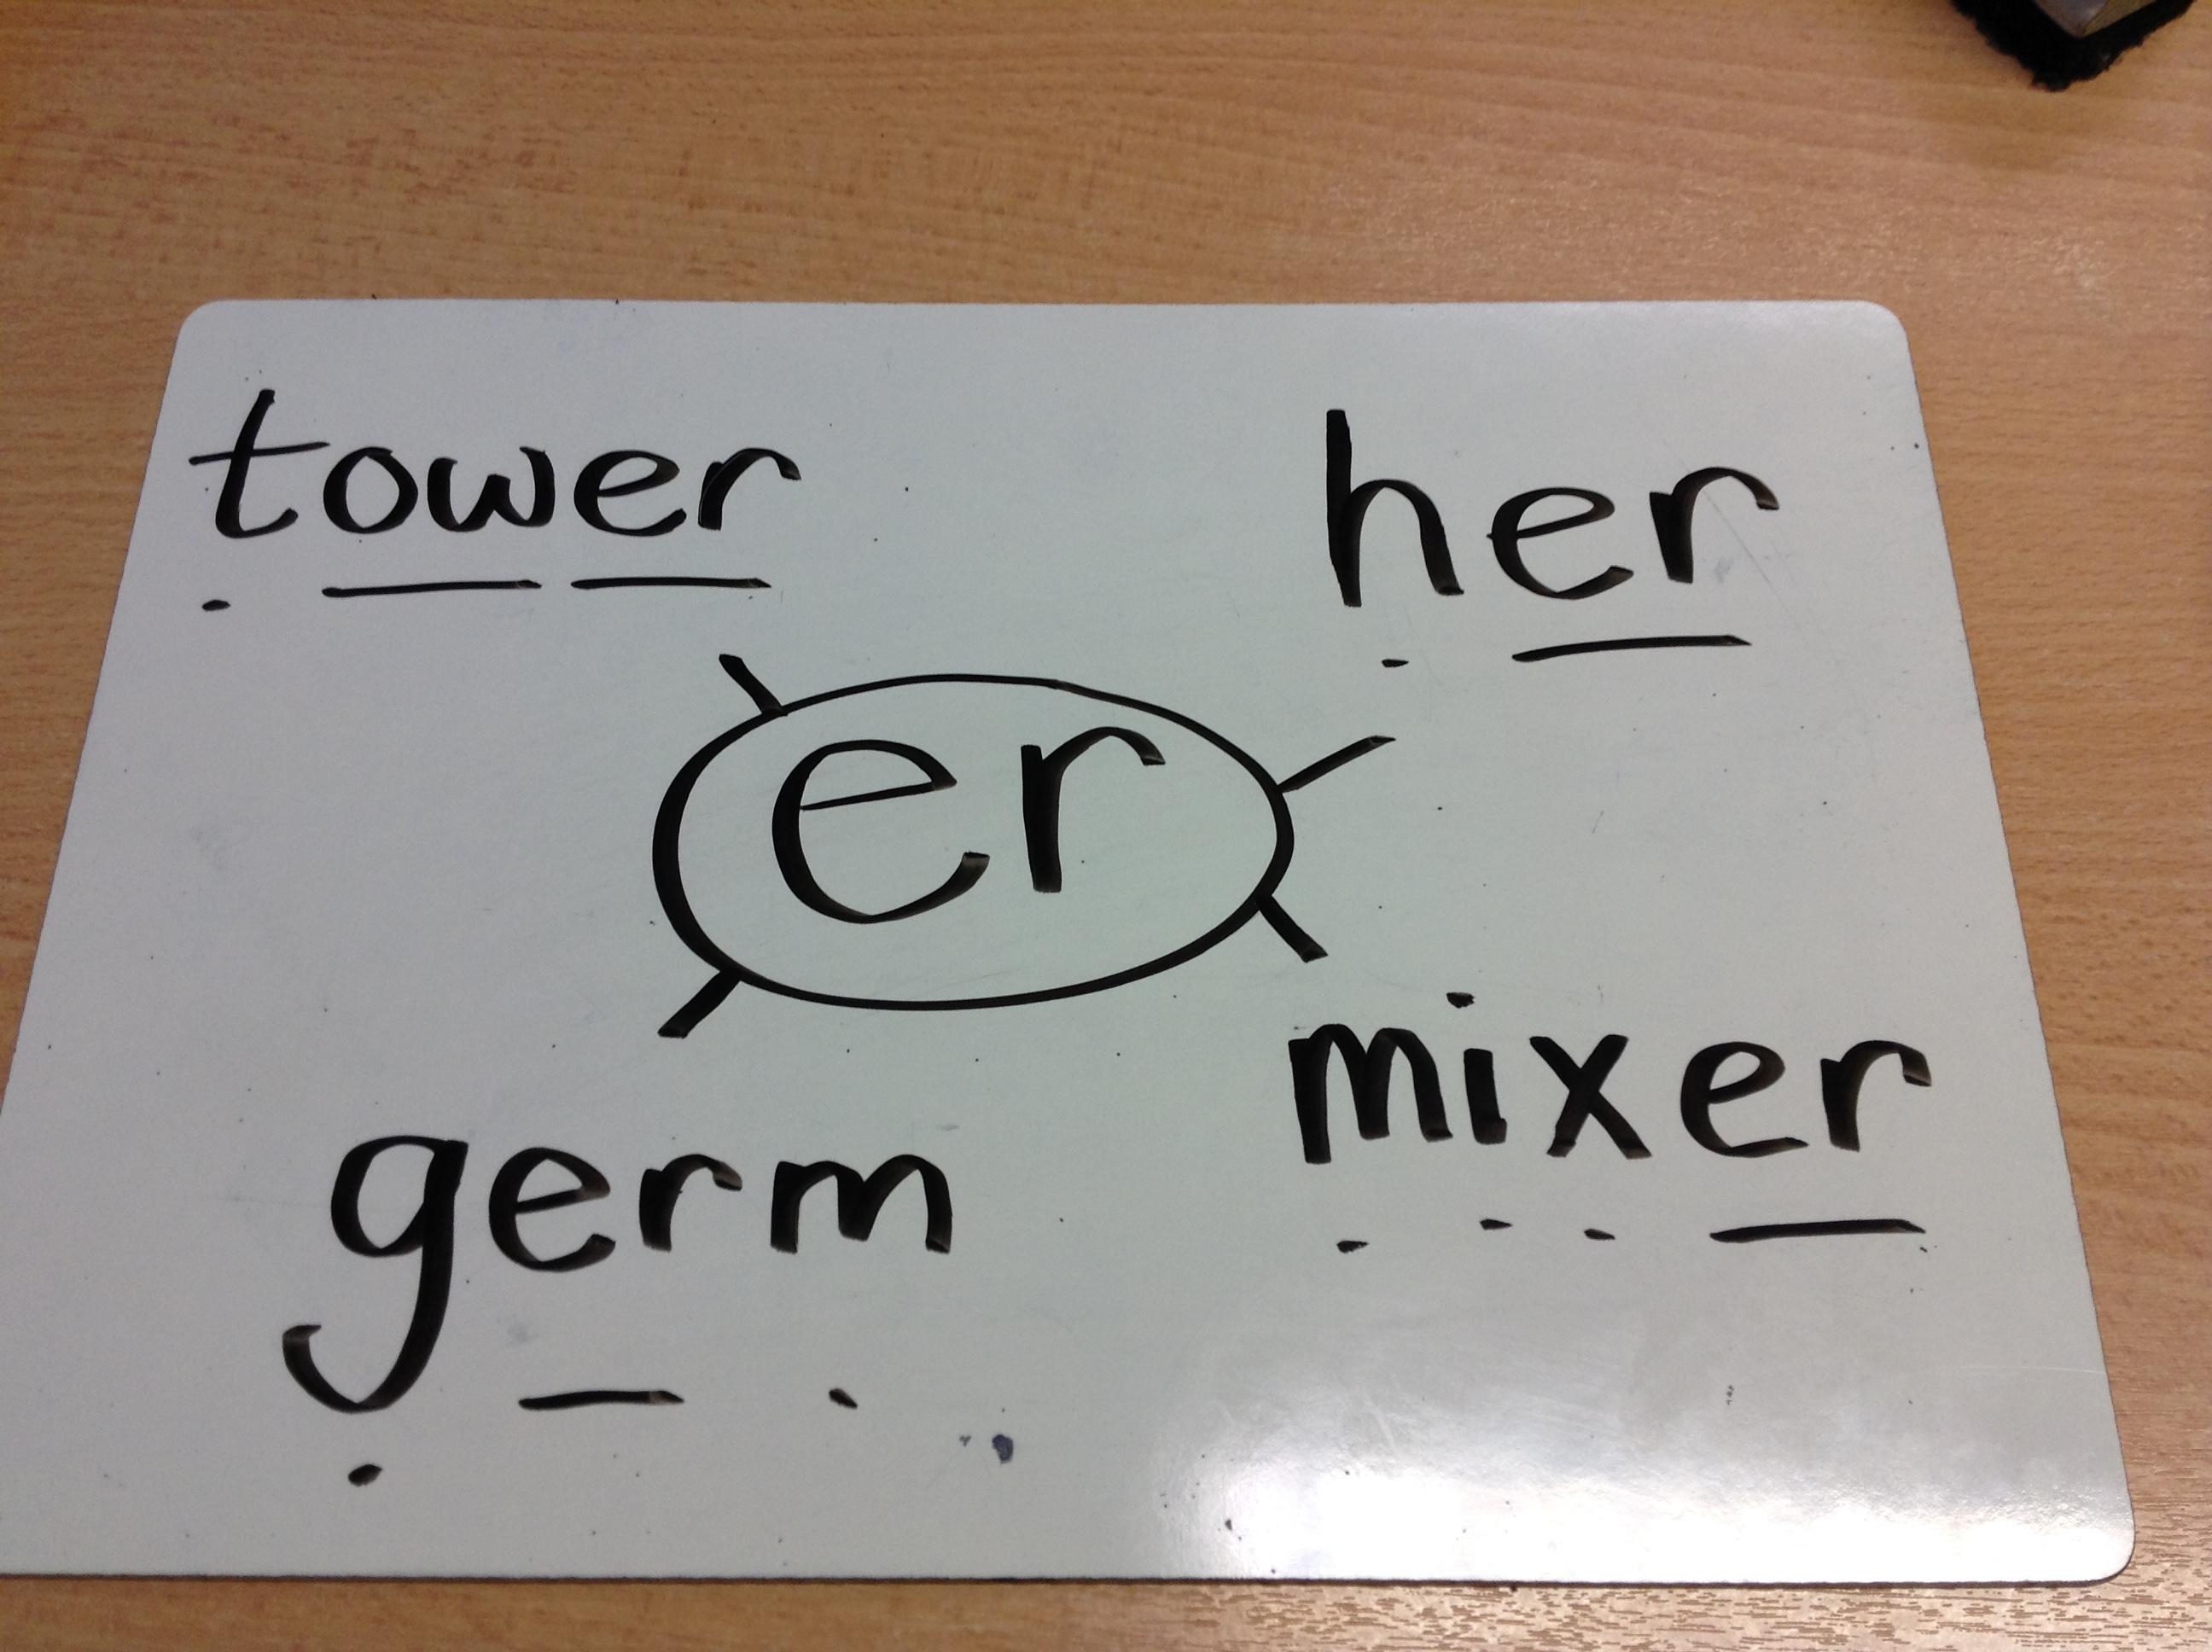 tower
her
er
mixer
germ